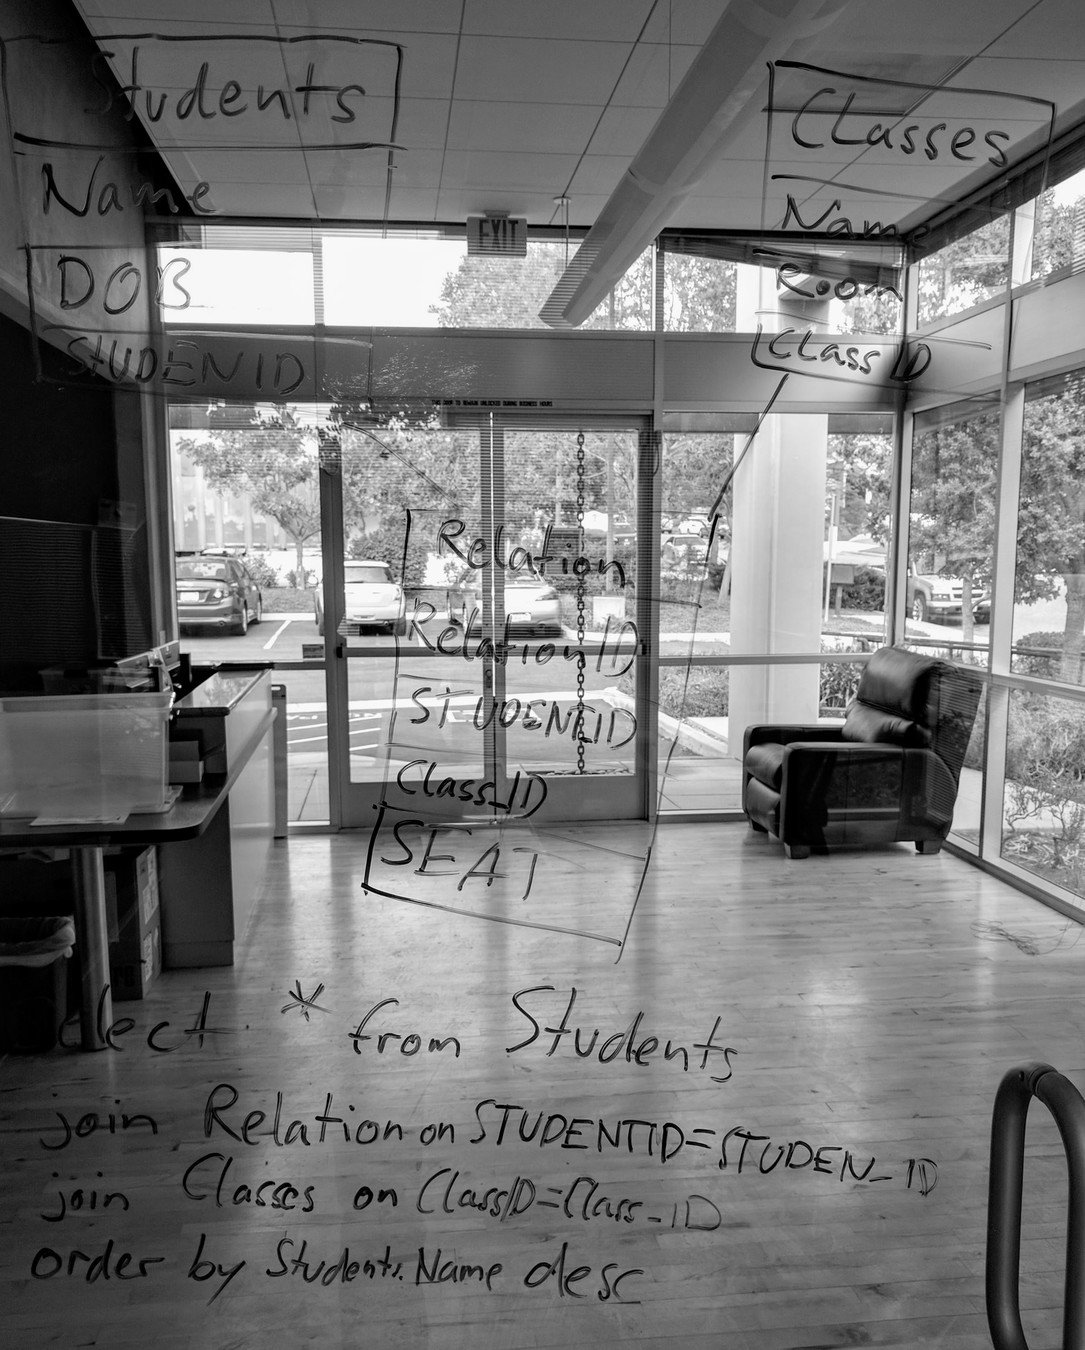 Students
Name
DOB
STUDENID
Classes
Name
Room
ClassID
EXIT
THIS DOOR TO REMAIN UNLOCKED DURING BUSINESS HOURS
Relation
RelationID
STUDENT_ID
Class_ID
SEAT
elect * from Students
join Relation on STUDENTID=STUDEN_ID
join Classes on ClassID=Class_ID
order by Students.Name desc